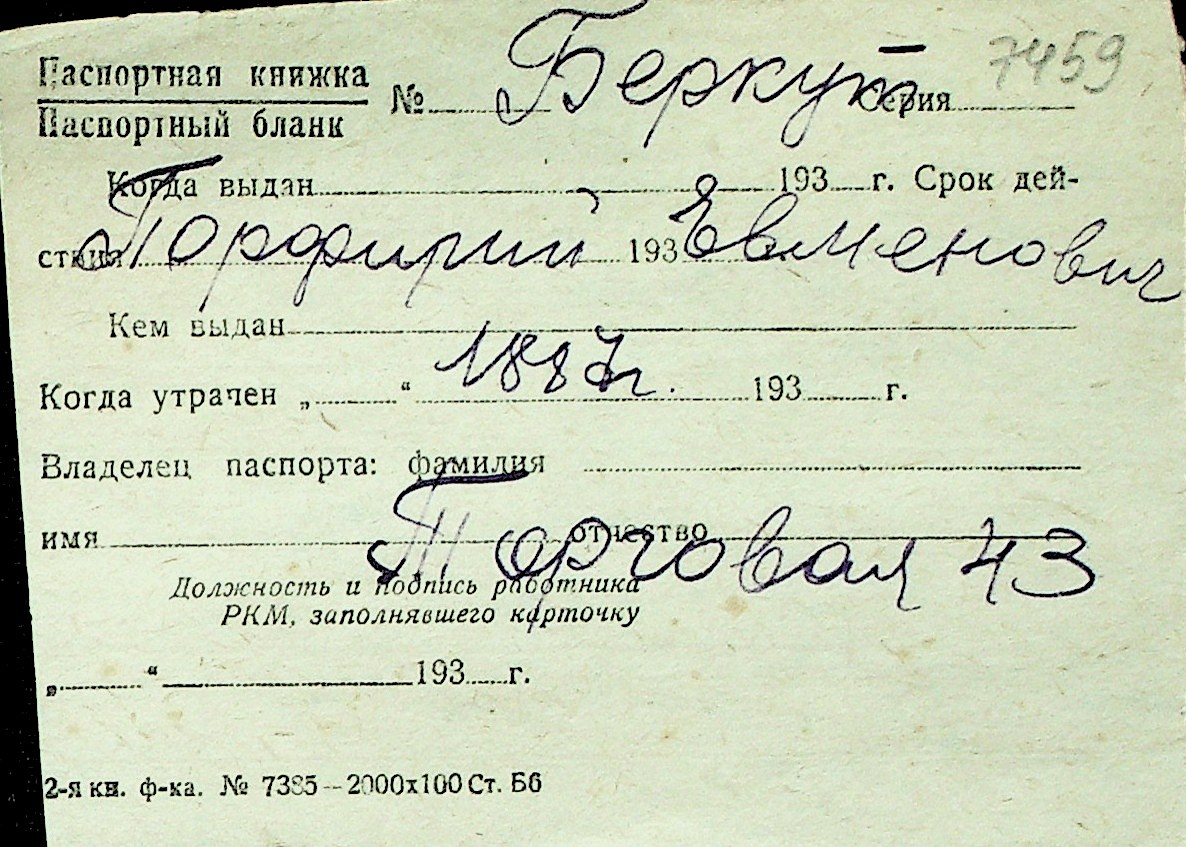 Паспортная книжка
Паспортный бланк
№ Беркут серия 7459
Когда выдан 193 г. Срок дей-
ствия 193
Порфирий Евменович
Кем выдан
1887 г.
Когда утрачен „ “ 193 г.
Владелец паспорта: фамилия
имя отчество
Торговая 43
Должность и подпись работника
РКМ, заполнявшего карточку
„ “ 193 г.
2-я кн. ф-ка. № 7385 – 2000х100 Ст. Бб